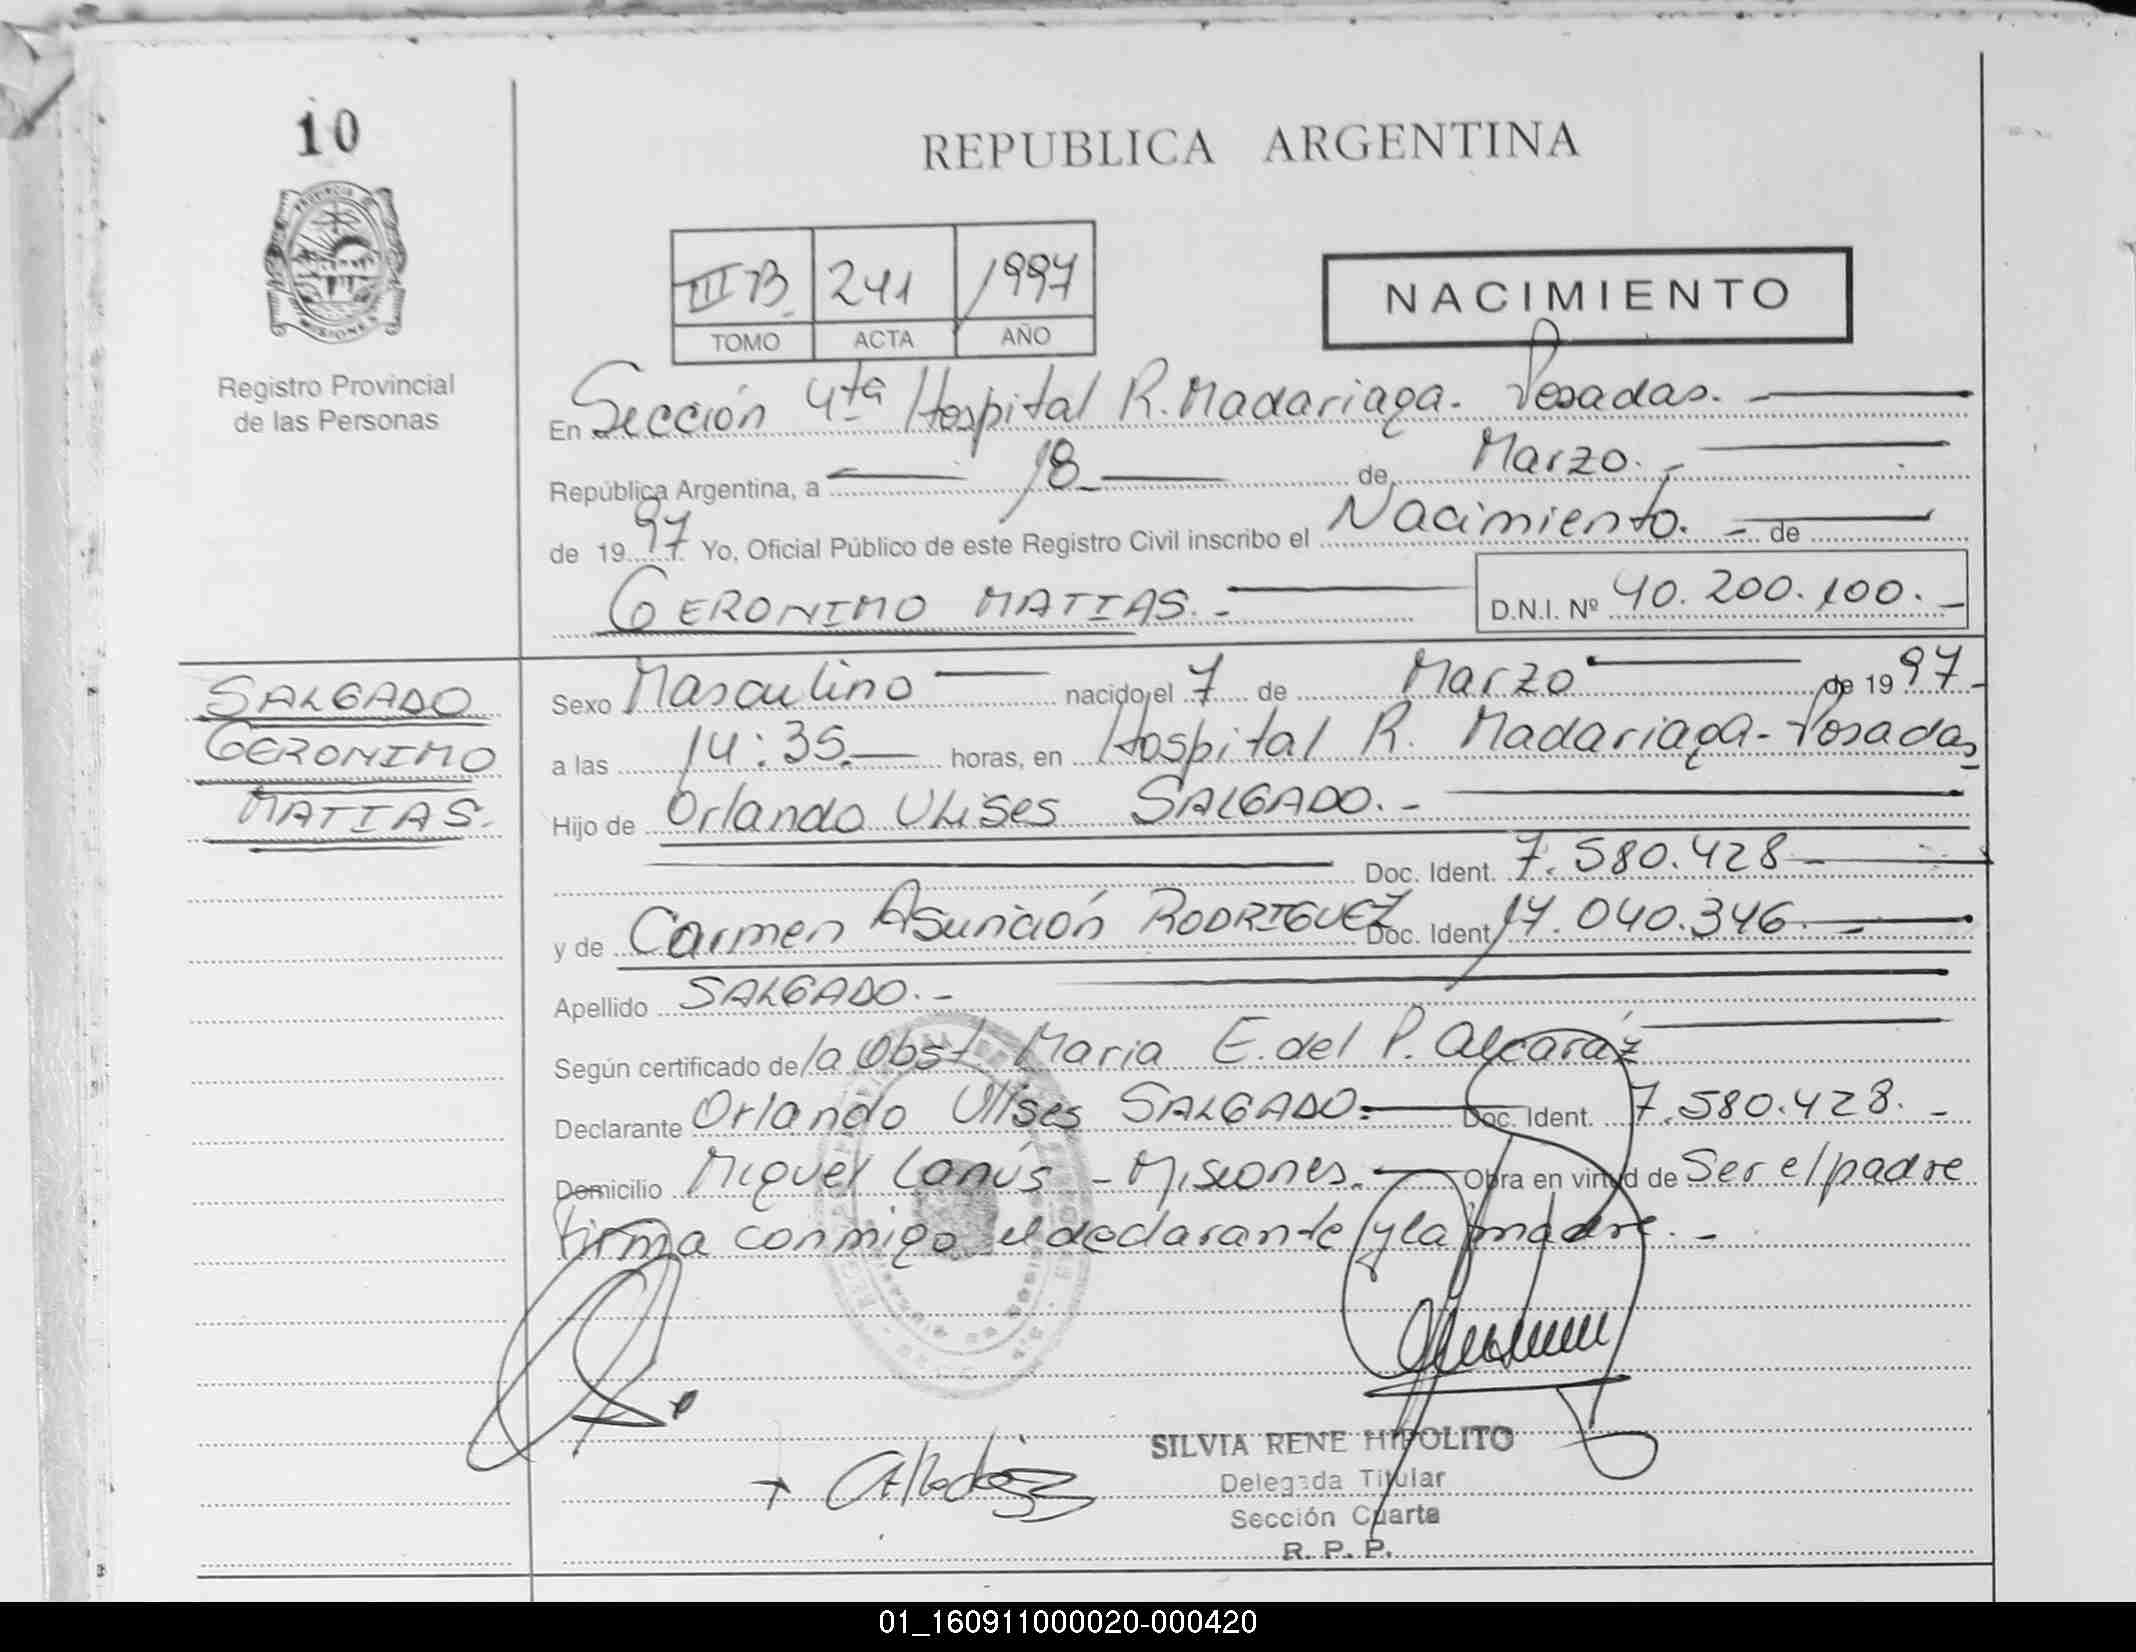 10
REPUBLICA ARGENTINA
PROVINCIA
MISIONES
Registro Provincial
de las Personas
III B 241 1997
TOMO ACTA AÑO
NACIMIENTO
En Sección 4ta Hospital R. Madariaga. Posadas.
República Argentina, a 18 de Marzo.
de 1997 Yo, Oficial Público de este Registro Civil inscribo el Nacimiento. de
GERONIMO MATIAS. D.N.I. Nº 40.200.100.
SALGADO
GERONIMO
MATIAS.
Sexo Masculino nacido el 7 de Marzo de 1997
a las 14:35 horas, en Hospital R. Madariaga - Posadas
Hijo de Orlando Ulises SALGADO.
Doc. Ident. 7.580.428
y de Carmen Asunción RODRIGUEZ Doc. Ident 17.040.346
Apellido SALGADO.
Según certificado de la Obst Maria E. del P. Alcaráz
Declarante Orlando Ulises SALGADO. Doc. Ident. 7.580.428.
Domicilio Miguel Lanús - Misiones. Obra en virtud de Ser el padre
firma conmigo el declarante y la madre.
SILVIA RENE HIPOLITO
Delegada Titular
Sección Cuarta
R. P. P.
01_160911000020-000420